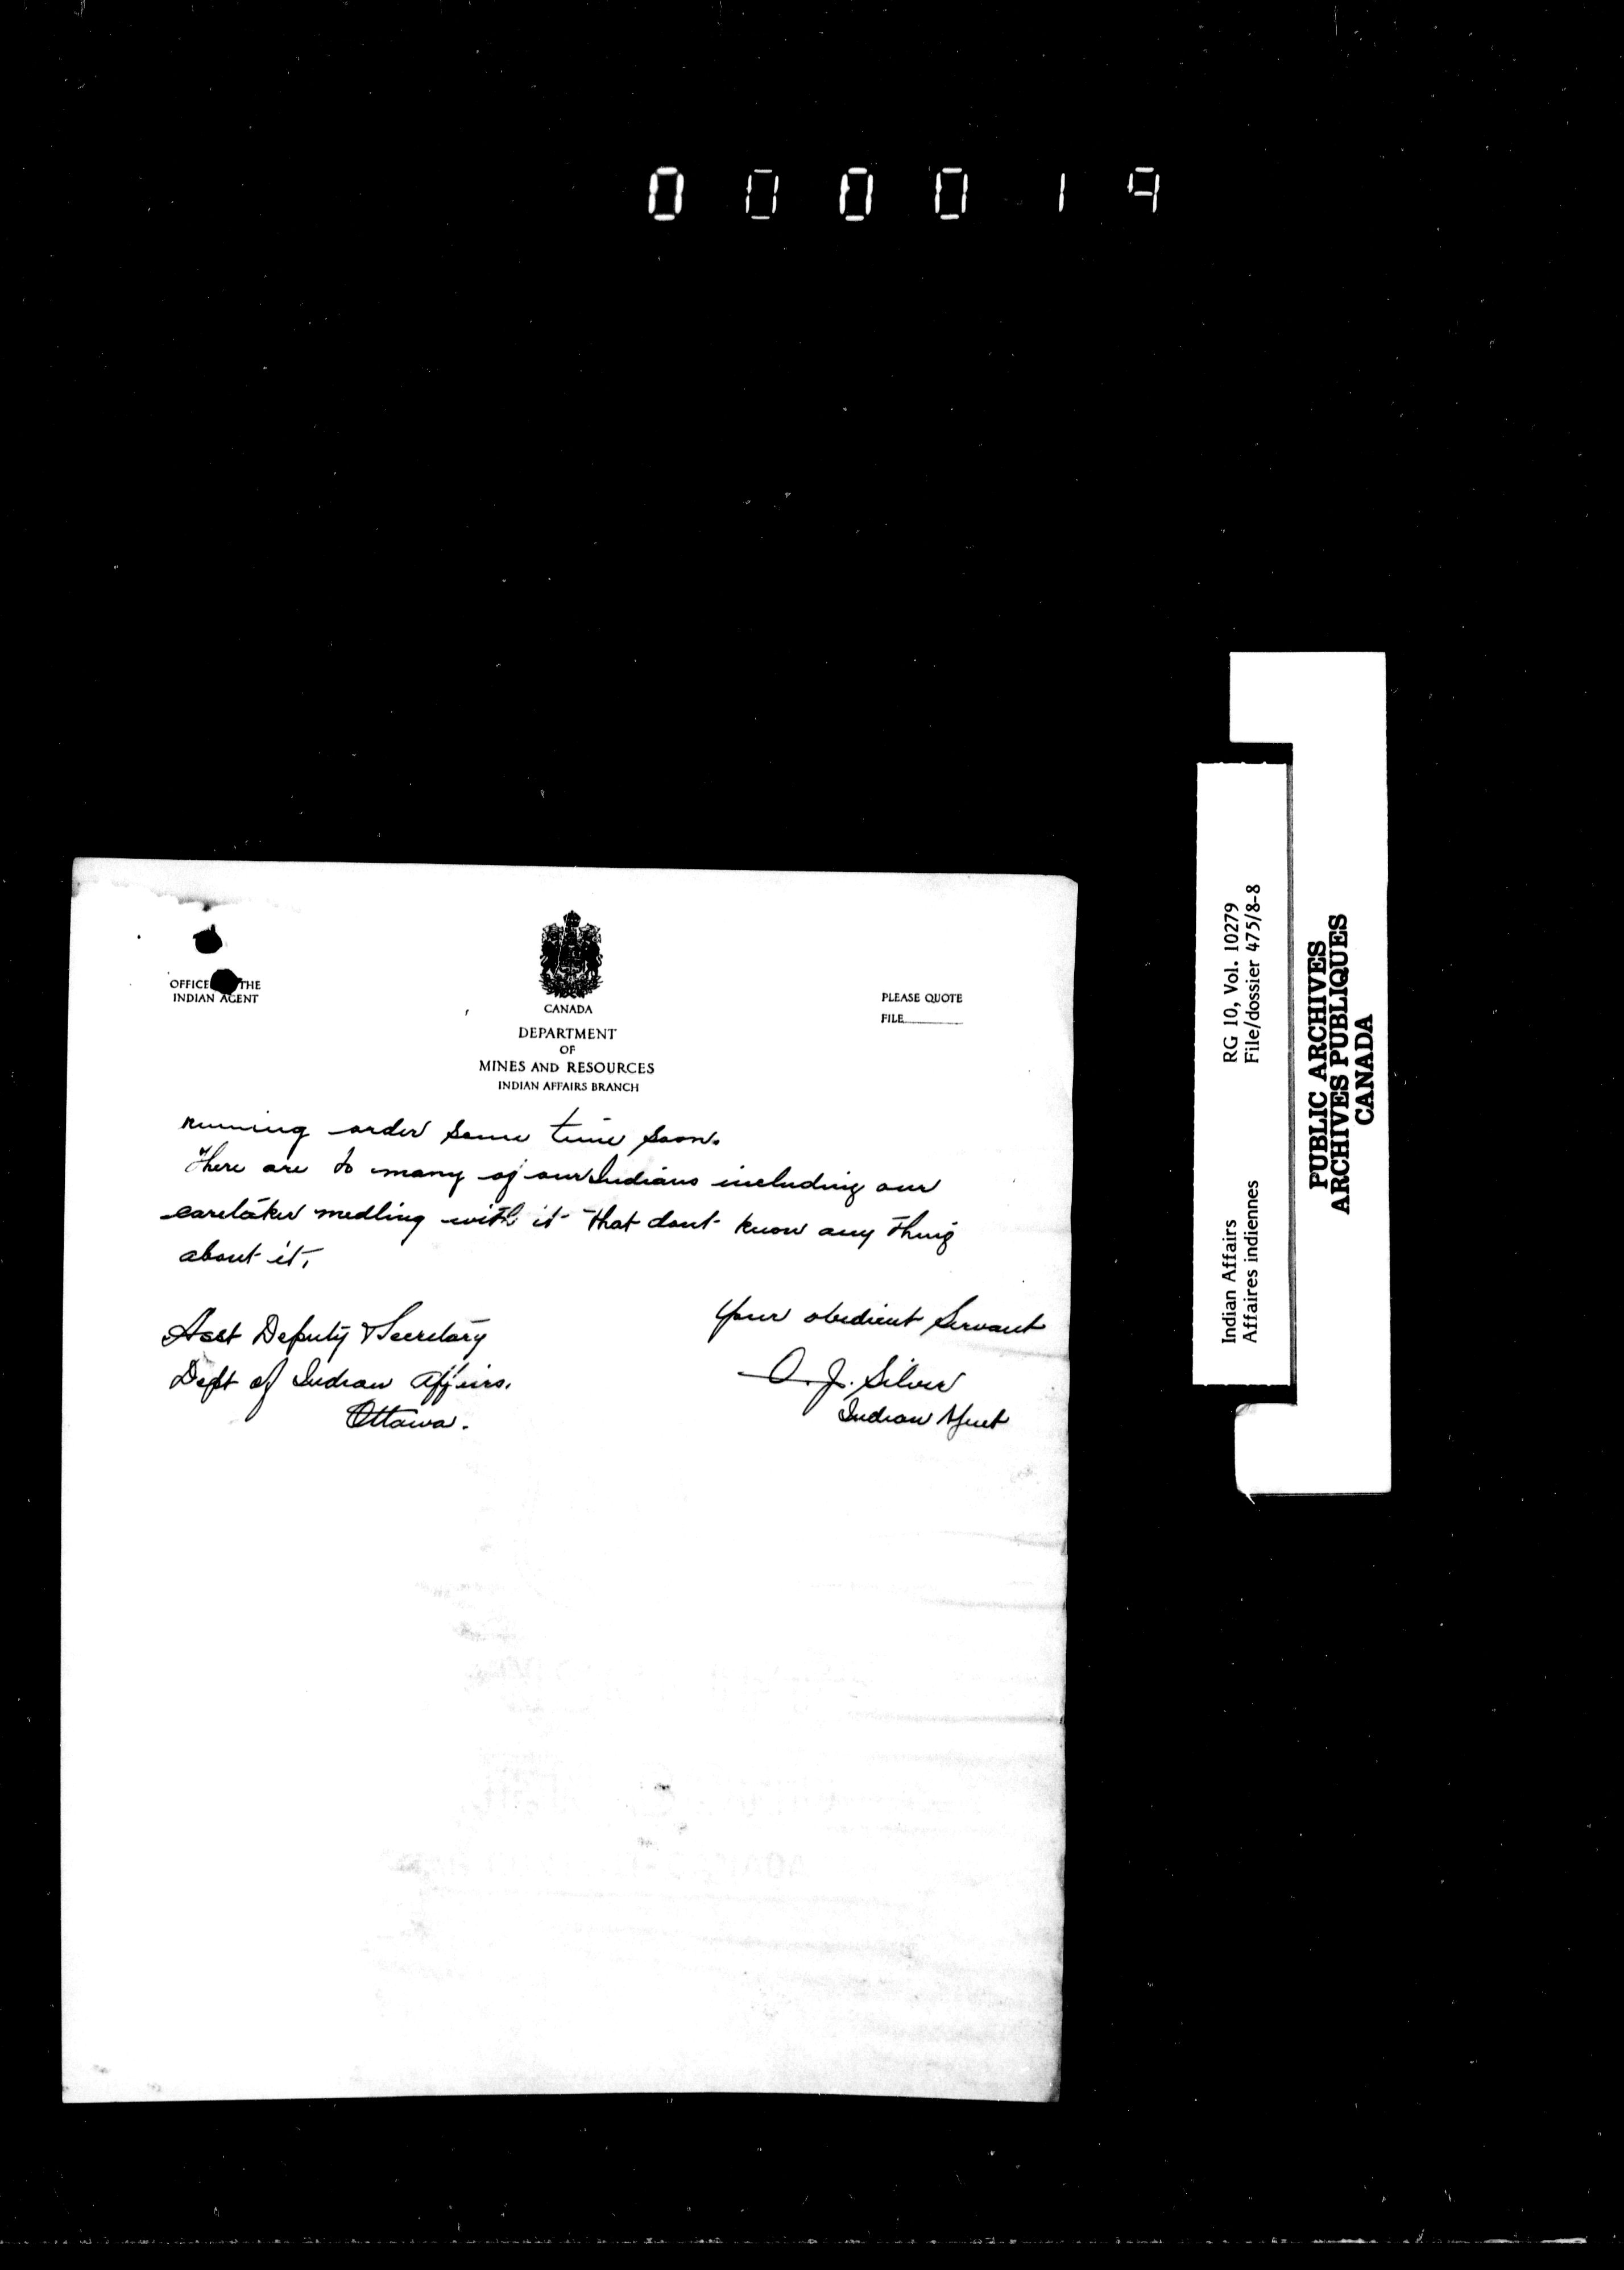 000019
OFFICE THE
INDIAN AGENT
CANADA
DEPARTMENT
OF
MINES AND RESOURCES
INDIAN AFFAIRS BRANCH
PLEASE QUOTE
FILE
running order some time soon.
There are to many of our Indians including our
caretaker medling with it that dont know any thing
about it,
Your obedient Servant
O. J. Silver
Indian Agent
Asst Deputy & Secretary
Dept of Indian Affairs.
Ottawa.
Indian Affairs RG 10, Vol. 10279
Affaires indiennes File/dossier 475/8-8
PUBLIC ARCHIVES
ARCHIVES PUBLIQUES
CANADA